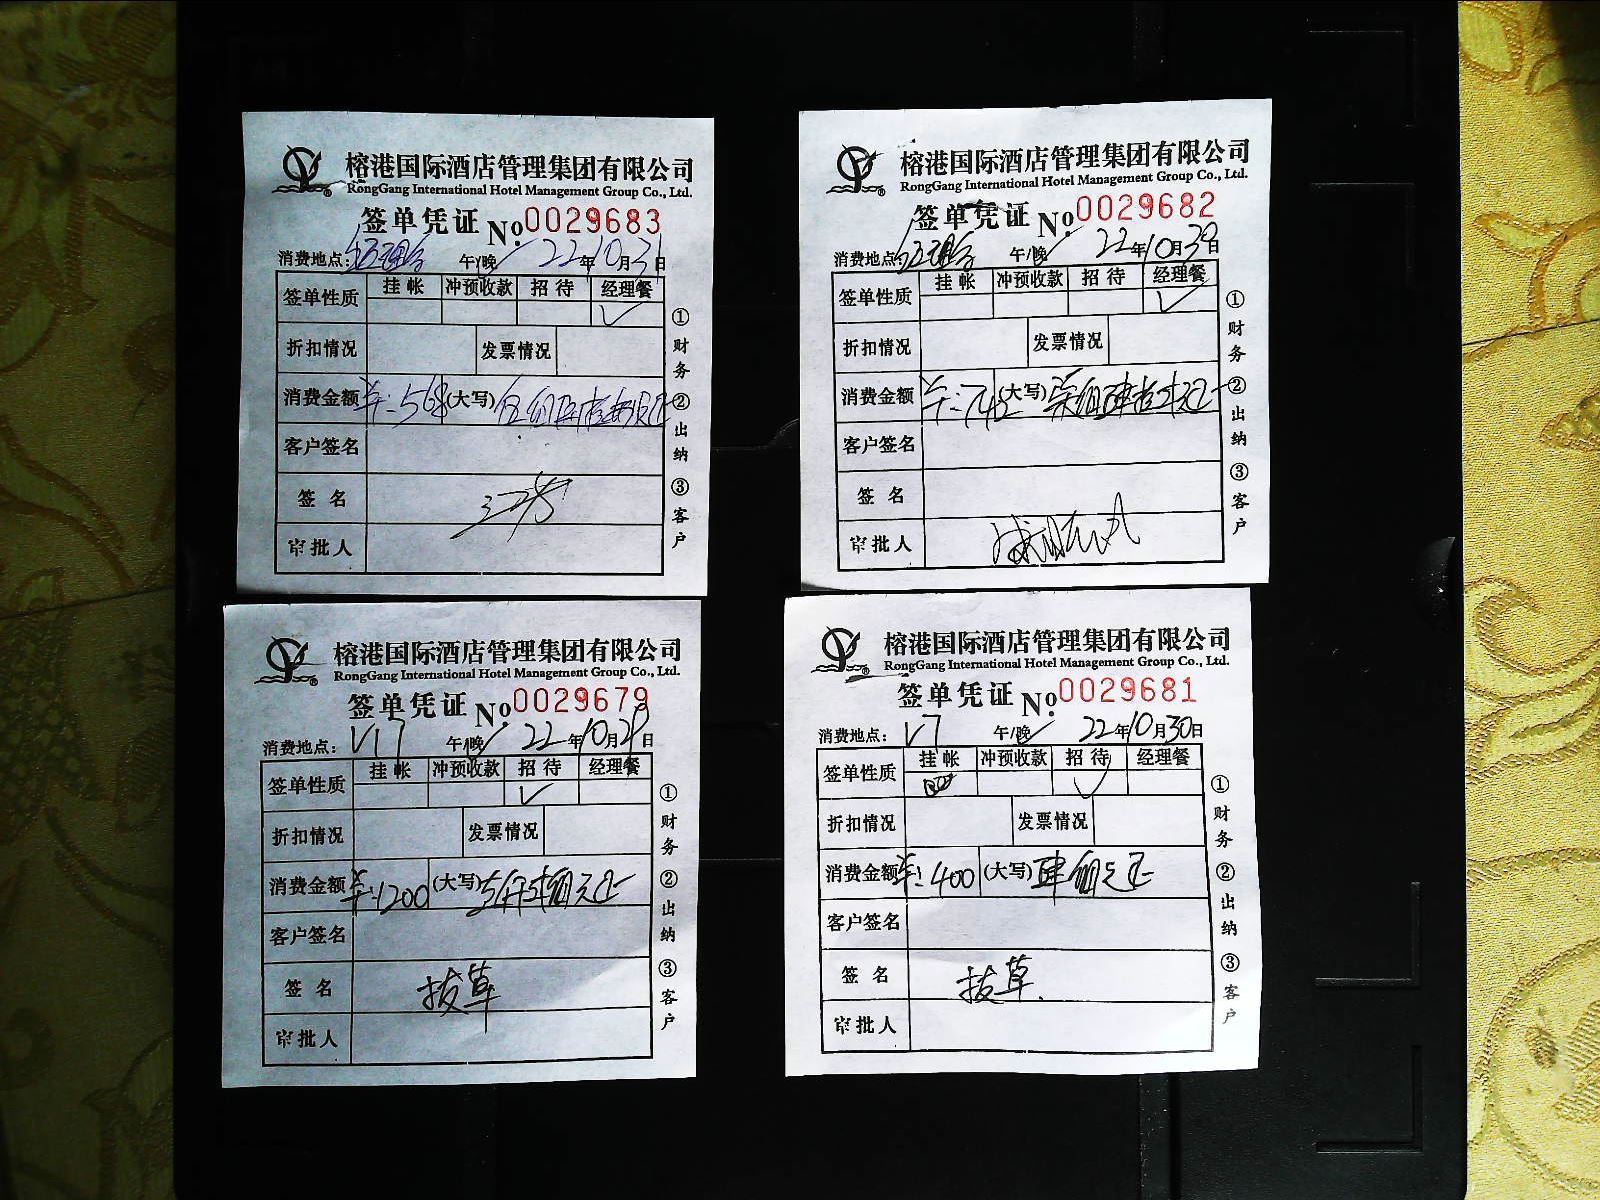 榕港国际酒店管理集团有限公司
RongGang International Hotel Management Group Co., Ltd.
签单凭证 №0029683
消费地点: 午/晚 22年10月31日
签单性质 挂帐 冲预收款 招待 经理餐
✓
折扣情况 发票情况
消费金额 ¥:568 (大写) 伍佰陆拾捌元正
客户签名
签名
审批人
①财务 ②出纳 ③客户
榕港国际酒店管理集团有限公司
RongGang International Hotel Management Group Co., Ltd.
签单凭证 №0029682
消费地点: 午/晚 22年10月30日
签单性质 挂帐 冲预收款 招待 经理餐
✓
折扣情况 发票情况
消费金额 (大写)
客户签名
签名
审批人
①财务 ②出纳 ③客户
榕港国际酒店管理集团有限公司
RongGang International Hotel Management Group Co., Ltd.
签单凭证 №0029679
消费地点: V17 午/晚 22年10月29日
签单性质 挂帐 冲预收款 招待 经理餐
✓
折扣情况 发票情况
消费金额 ¥:1200 (大写) 壹仟贰佰元正
客户签名
签名 拔草
审批人
①财务 ②出纳 ③客户
榕港国际酒店管理集团有限公司
RongGang International Hotel Management Group Co., Ltd.
签单凭证 №0029681
消费地点: V7 午/晚 22年10月30日
签单性质 挂帐 冲预收款 招待 经理餐
✓
折扣情况 发票情况
消费金额 ¥:400 (大写) 肆佰元正
客户签名
签名 拔草
审批人
①财务 ②出纳 ③客户